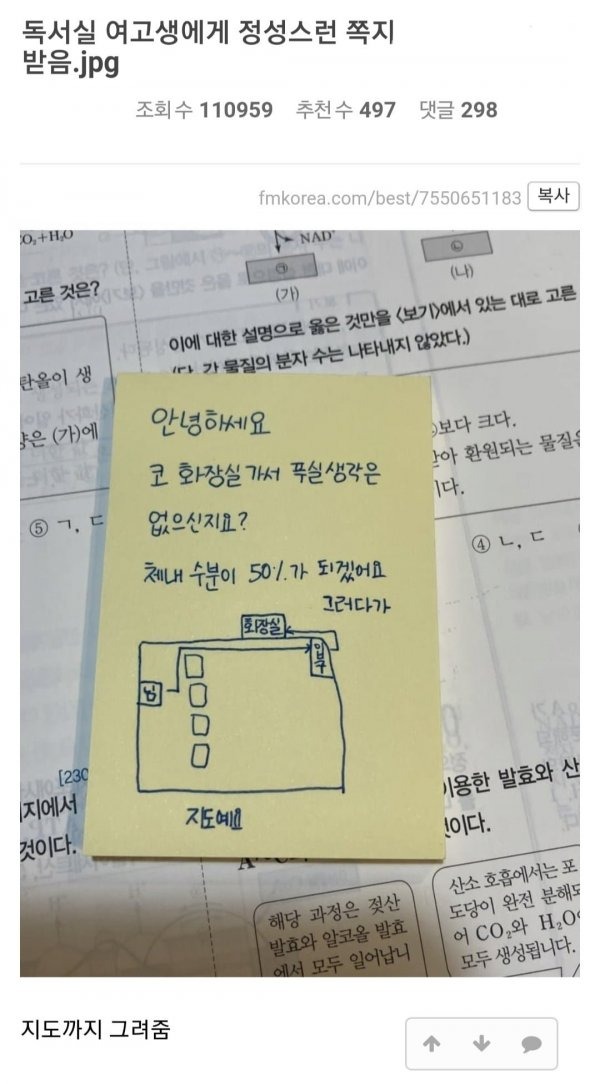 독서실 여고생에게 정성스런 쪽지
받음.jpg
조회수 110959 추천수 497 댓글 298
fmkorea.com/best/7550651183 복사
CO₂+H₂O
NAD⁺
㉠
㉡
(가)
(나)
고른 것은?
이에 대한 설명으로 옳은 것만을 <보기>에서 있는 대로 고른
(단, 각 물질의 분자 수는 나타내지 않았다.)
탄율이 생
양은 (가)에
보다 크다.
아 환원되는 물질은
이다.
⑤ ㄱ, ㄷ
④ ㄴ, ㄷ
안녕하세요
코 화장실가서 푸실생각은
없으신지요?
체내 수분이 50%가 되겠어요
그러다가
화장실
입구
남
지도예요
[230
지에서
것이다.
이용한 발효와 산
것이다.
해당 과정은 젖산
발효와 알코올 발효
에서 모두 일어납니
산소 호흡에서는 포
도당이 완전 분해되
어 CO₂와 H₂O
모두 생성됩니다.
지도까지 그려줌